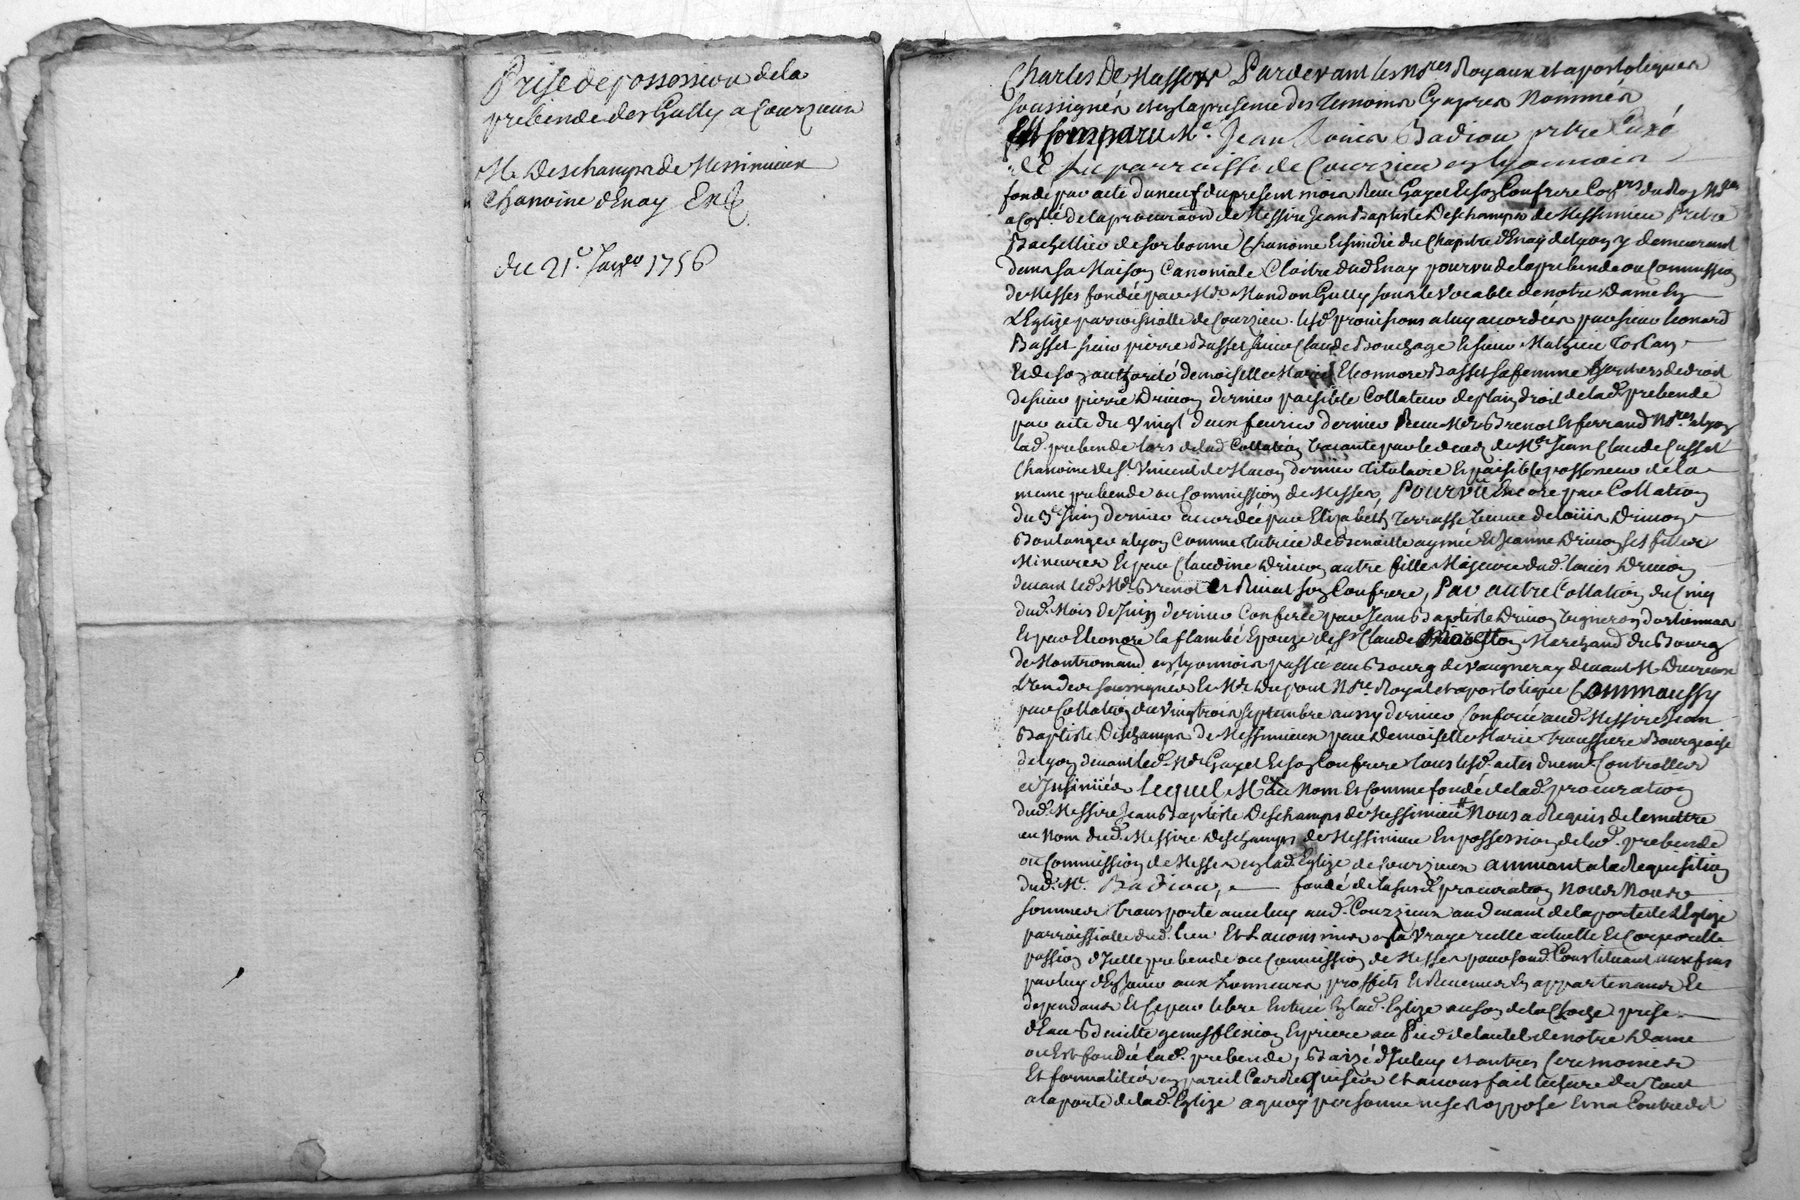 Prise de possession de la
prebende des Gully a Courzieux
Mr Deschamps de Messimieux
Chanoine d'Enay
du 21e. 1756
Pardevant les Nres Royaux et apostoliques
soussignés et en la presence des Temoins Cy apres Nommés
Est Comparu Me. Jean Badiou prtre Curé
de La parroisse de Courzieu en lyonnois
fondé par acte du neuf du present mois Receu Gayet et son Confrere Coners du Roy Nres
a de la procuration de Messire Jean Baptiste Deschamps de Messimieu Prêtre
Bachellier de sorbonne Chanoine et sindic du Chapitre d'Enay de lyon y demeurant
dans sa Maison Canoniale Cloitre dud Enay pourvu de la prebende ou Commission
de Messes fondée par Gully sous le Vocable de notre dame En
L'Eglize parroissialle de Courzieu. lesd. provisions a luy accordées par sieur Leonard
Basset sieur pierre Basset sieur Claude Bouchage et sieur Mathieu
et de son authorité demoiselle Marie Eleonnore Basset sa femme heritiers de droit
de sieur pierre Drivon dernier paisible Collateur de plain droit de lad. prebende
par acte du Vingt deux fevrier dernier Receu Mes Brenot et ferrand Nres a lyon
lad. prebende lors de lad Collation Vacante par le deces de Me Jean Claude Cusset
Chanoine de St Vincent de Macon dernier titulaire et paisible possesseur de la
meme prebende ou Commission de Messes, Pourvu Encore par Collation
du 3e Juin dernier accordée par Elizabeth Terrasse Veuve de Louis Drivon
Boulanger a lyon Comme tutrice de Benoitte aymée et Jeanne Drivon ses filles
Mineures et par Claudine Drivon autre fille Majeure dud. Louis Drivon
devant led. Me Brenot et son Confrere, Par autre Collation du Cinq
dud. Mois de Juin dernier Conferée par Jean Baptiste Drivon Vigneron
et par Eleonore la flambé Epouze de sr Claude Marchand du Bourg
de Montromand en lyonnois passée au Bourg de Vaugneray devant Me
L'un des soussignés et Me Dupont Nre Royal et apostolique Comm'aussy
par Collation du Vingt trois septembre aussy dernier Conferée aud. Messire Jean
Baptiste Deschamps de Messimieux par Demoiselle Marie Bourgeoise
de lyon devant led. Me Gayet et son Confrere tous lesd. actes duem. Controllés
et Insinués lequel Me au Nom et Comme fondé de lad. procuration
dud. Messire Jean Baptiste Deschamps de Messimieu Nous a Requis de le mettre
au Nom dud. Messire Deschamps de Messimieu En possession de lad. prebende
ou Commission de Messes en lad. Eglize de Courzieux annuant a la Requisition
dud. Me. Badiou, fondé de la susd. procuration Nous Nous
sommes transporté avec luy aud. Courzieux au devant de la porte de L'Eglize
parroissialle dud. lieu Et L'avons mis en la Vraye reelle actuelle et Corporelle
possion d'Icelle prebende ou Commission de Messes pour sond. Constituant aux fins
par luy d'En Jouir aux honneurs proffits et Revenus En appartenants et
dependants Et Ce par libre Entrée En lad. Eglize au son de la Cloche prise
d'Eau Benitte genufflexion En priere au Pied de l'autel de notre Dame
ou Est fondée lad. prebende, Baizé d'Iceluy et autres Ceremonies
Et formalités en pareil Cas Requises et avons fait lecture du Tout
a la porte de lad. Eglize a quoy personne ne s'est opposé Et na Contredit